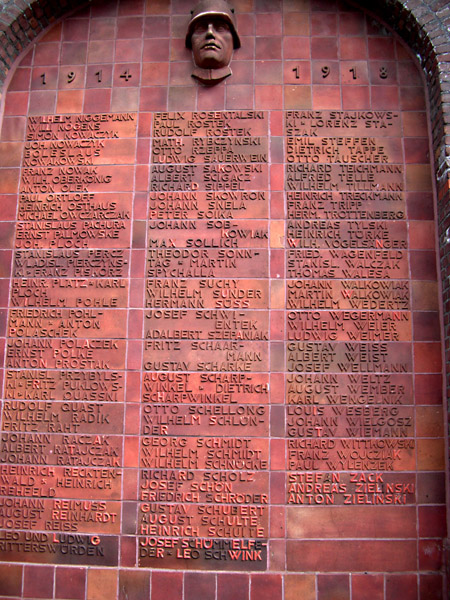 1914 1918
WILHELM NIGGEMANN
WILL NOGENS
JOH. NOWACZYK
FRANZ NOWAK
ANTON OLEK
PAUL ORTLOFF
HEINR. OSTHAUS
MICHAEL OWCZARCZAK
STANISLAUS PACHURA
ERNST PALMOWSKE
JOH. PLOCH
STANISLAUS PERCZ
W.-FRANZ PISKORZ
HEINR. PLATZ-KARL
WILHELM POHLE
FRIEDRICH POHL-
MANN-ANTON
JOHANN POLACZEK
ERNST POLKE
ANTON PROSTAK
N-FRITZ PAWLOWS-
KI-KARL QUASSNI
RUDOLF QUAST
WILHELM RADIK
FRITZ RAHT
JOHANN RACZAK
ALBERT RATAJCZAK
JOHANN RATAJCZAK
HEINRICH REGKTEN-
WALD & HEINRICH
REHFELD
JOHANN REIMUSS
AUGUST REINHARDT
JOSEF REISS
LEO UND LUDWIG
RITTERSWÜRDEN
FELIX ROSENTALSKI
PAUL ROSTEK
RUDOLF ROSTEK
MATH. RYBCZYNSKI
LUDWIG SAUERWEIN
AUGUST SAKOWSKI
RICHARD SIPPEL
JOHANN SKOWRON
PETER SOIKA
JOHANN SOB-
OWIAK
MAX SOLLICH
THEODOR SONN-
TAG MARTIN
SPYCHALLA
FRANZ SUCHY
WILHELM SUNDER
HERMANN SÜSS
JOSEF SCHWI-
ENTEK
ADALBERT SCEPANIAK
FRITZ SCHAAR-
MANN
GUSTAV SCHARKE
AUGUST SCHARP-
WINKEL-DIETRICH
SCHARPWINKEL
OTTO SCHELLONG
WILHELM SCHLÜN-
DER
GEORG SCHMIDT
WILHELM SCHMIDT
WILHELM SCHNÜCKE
RICHARD SCHOLZ
JOSEF SCHON
FRIEDRICH SCHRÖDER
GUSTAV SCHUBERT
AUGUST SCHULTE
HEINRICH SCHULTE
JOSEF SCHÜMMELFE-
DER-LEO SCHWINK
FRANZ STAJKOWS-
KI-LORENZ STA-
SZAK
EMIL STEFFEN
OTTO TÄUSCHER
RICHARD TEICHMANN
WILHELM TILLMANN
HEINRICH TRECKMANN
HERM. TROTTENBERG
ANDREAS TYLSKI
HEINRICH TÜRK
WILH. VOGELSÄNGER
FRIED. WAGENFELD
THOMAS WALESA
JOHANN WALKOWIAK
MARTIN WALKOWIAK
WILHELM WEDERTZ
OTTO WEGERMANN
WILHELM WEIER
LUDWIG WEIMER
GUSTAV WEISE
ALBERT WEIST
JOSEF WELLMANN
JOHANN WELTZ
AUGUST WEMBER
KARL WENGELNIK
LOUIS WESBERG
JOHANN WIELGOSZ
GUSTAV WIEMANN
RICHARD WITTKOWSKI
FRANZ WOUCZIAK
PAUL WILENZEK
STEFAN ZACK
ANDREAS ZIELINSKI
ANTON ZIELINSKI